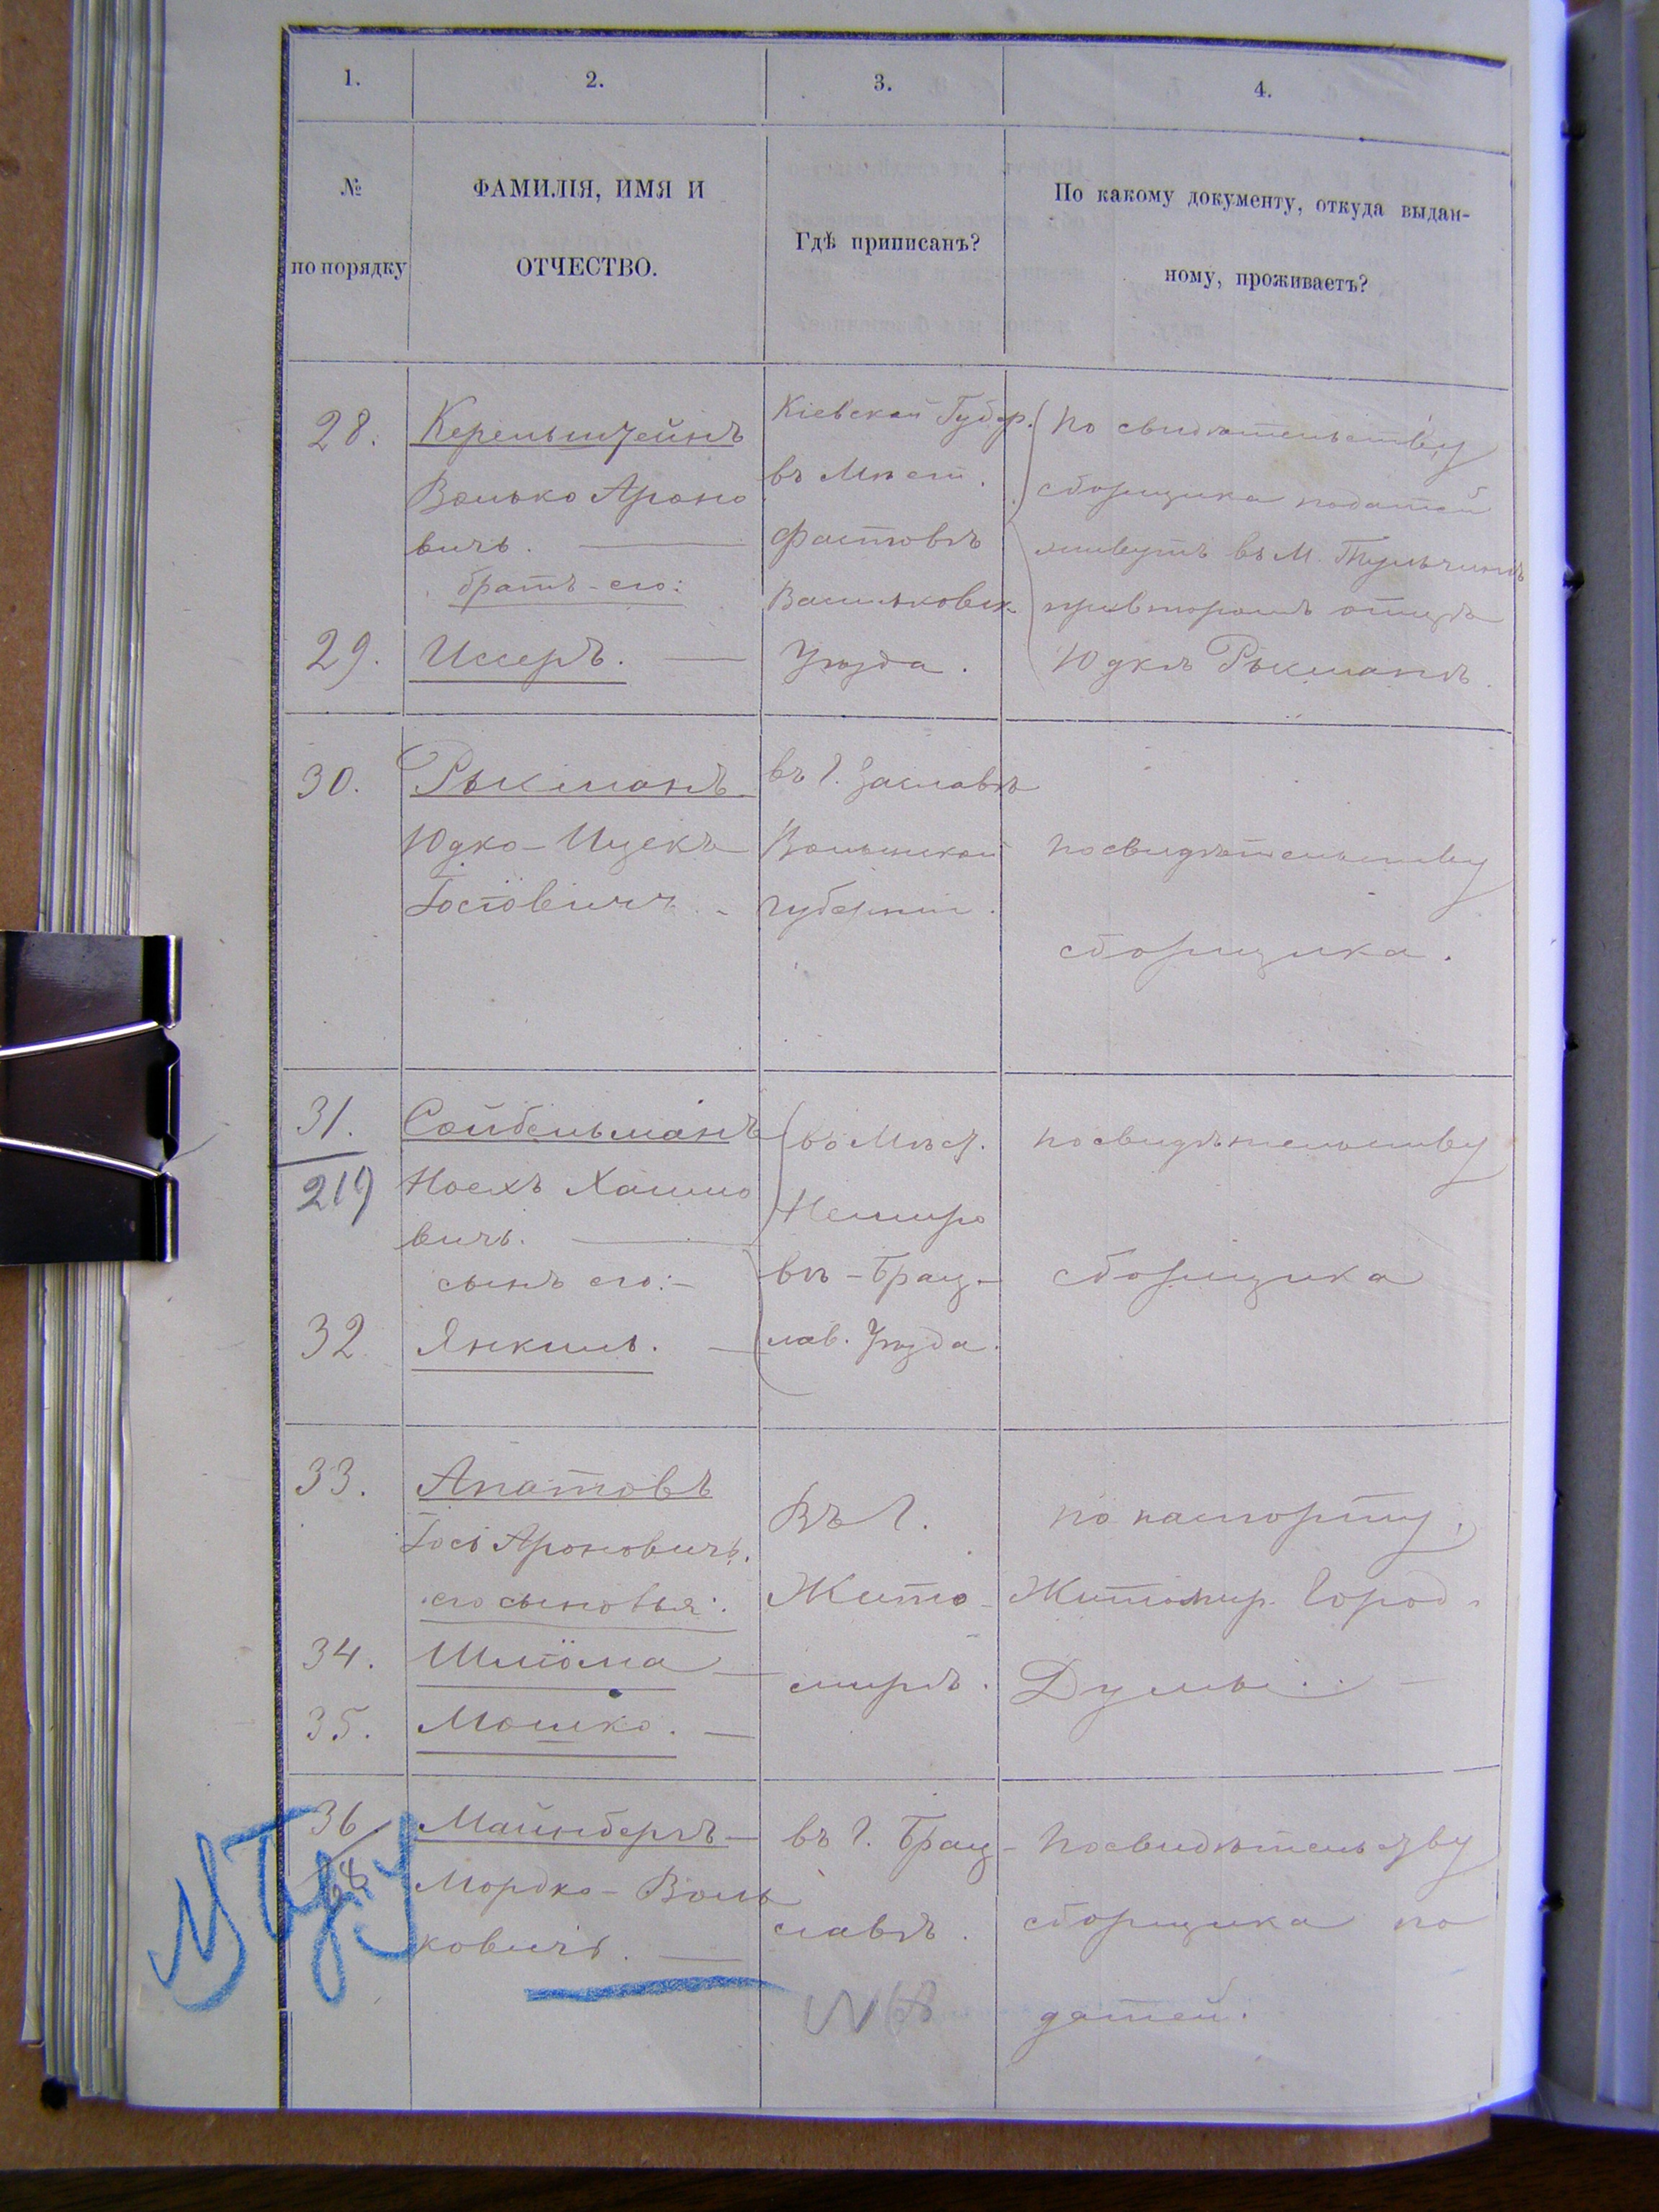 1. 2. 3. 4.
№ по порядку
ФАМИЛІЯ, ИМЯ И
ОТЧЕСТВО.
Гдѣ приписанъ?
По какому документу, откуда выдан-
ному, проживаетъ?
28.
Керенштейнъ
Волько Ароно
вичъ.
братъ-его:
29. Иссеръ.
Кіевской Губер.
въ Мѣст.
Фастовѣ
Васильковск.
Уѣзда.
По свидѣтельству
сборщика податей
живутъ въ М. Тульчинѣ
при второмъ отцѣ
Юдкѣ Рыкманѣ.
30. Рыкманъ
Юдко-Ицекъ
Іосіовичъ
въ г. Заславѣ
Волынской
губерніи.
по свидѣтельству
сборщика.
31.
219
Сойбельманъ
Ноехъ Хаимо
вичъ.
сынъ его:-
32 Янкиль.
въ Мѣст.
Немиро
вѣ-Брац-
лав. Уѣзда.
по свидѣтельству
сборщика
33. Апатовъ
Іось Ароновичъ.
его сыновья:
34. Шліома
35. Мошко.
Въ г.
Жито-
мирѣ.
по паспорту,
Житомир. Город.
Думы.
36.
68
Майнбергъ
Мордко-Воль
ковичъ.
въ г. Брац-
славѣ.
N 68
По свидѣтельству
сборщика по
датей.